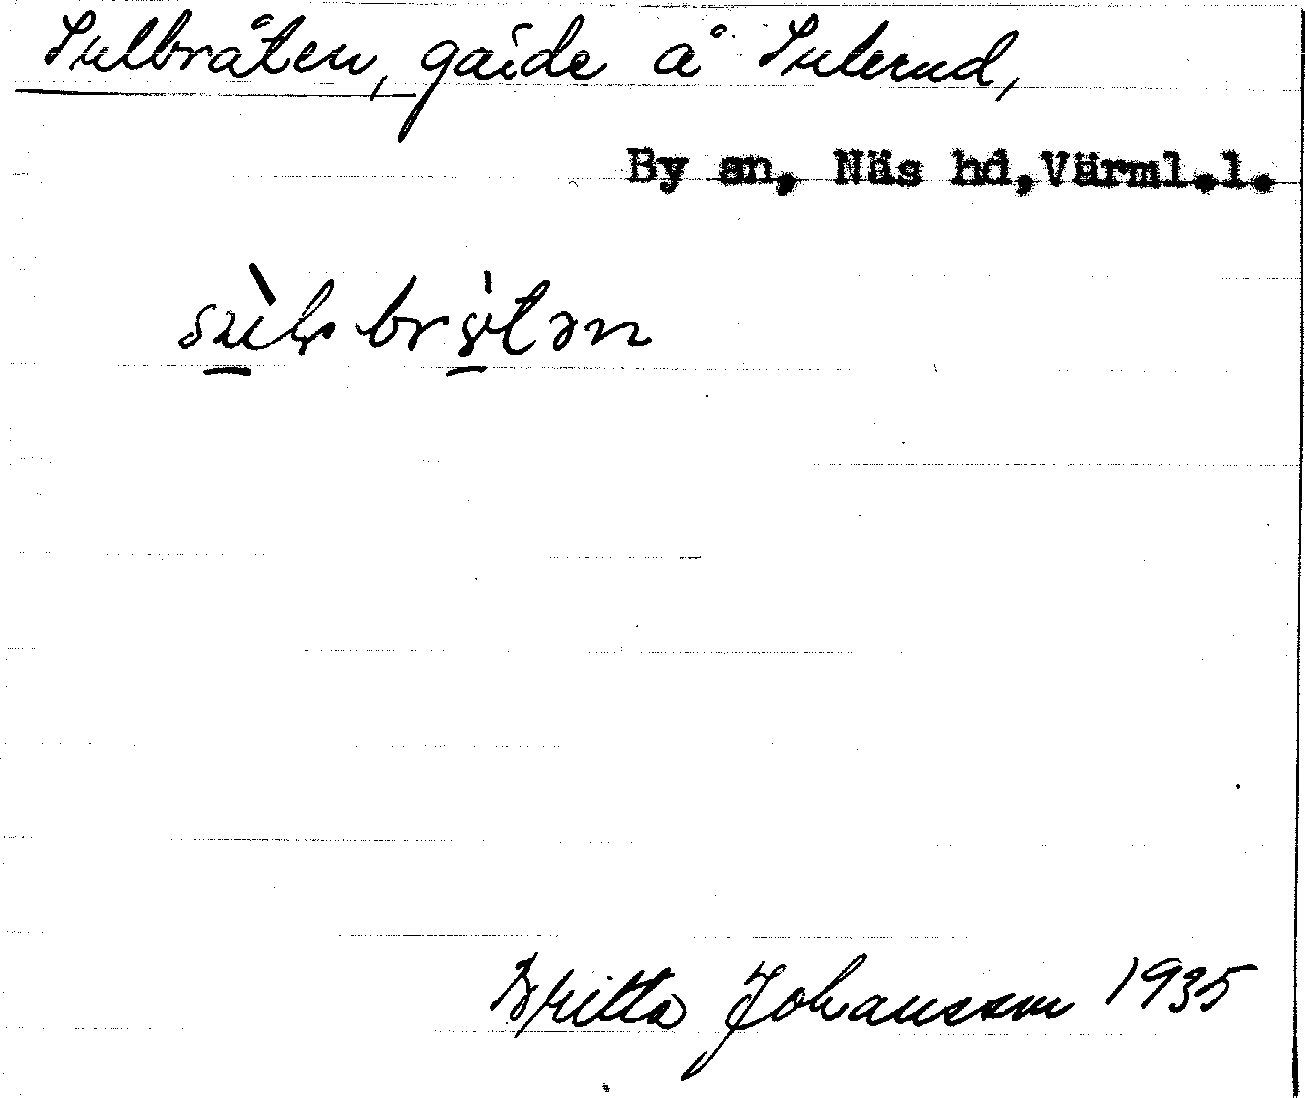 Sulbråten, gärde å Sulerud,
By sn, Näs hd,Värml.l.
Britta Johansson 1935